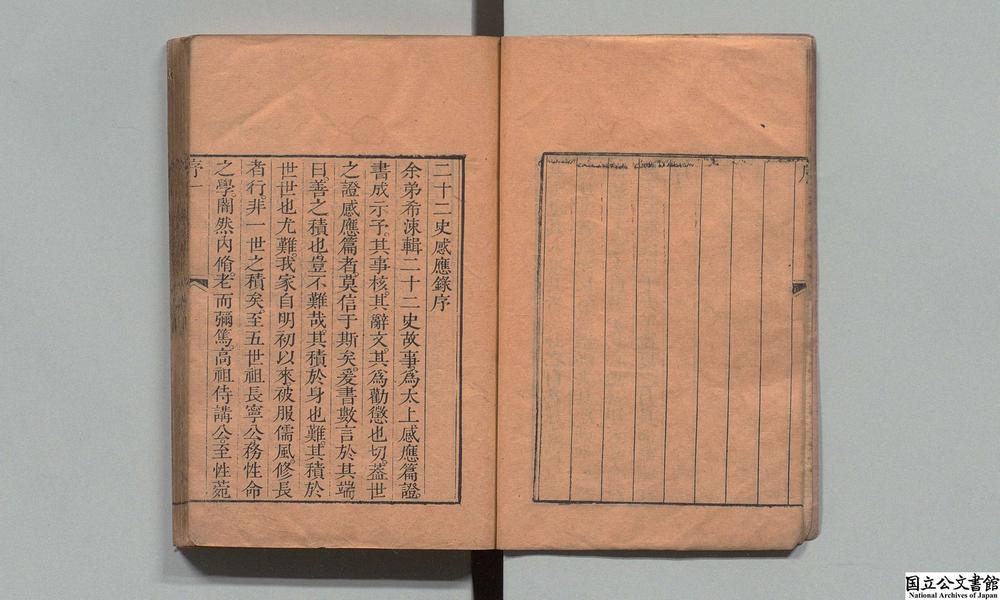 二十二史感應錄序
余弟希涑輯二十二史故事爲太上感應篇證
書成示予其事核其辭文其爲勸懲也切蓋世
之證感應篇者莫信于斯矣爰書數言於其端
曰善之積也豈不難哉其積於身也難其積於
世世也尤難我家自明初以來被服儒風修長
者行非一世之積矣至五世祖長寧公務性命
之學闇然內脩老而彌篤高祖侍講公至性菀
序一
国立公文書館
National Archives of Japan